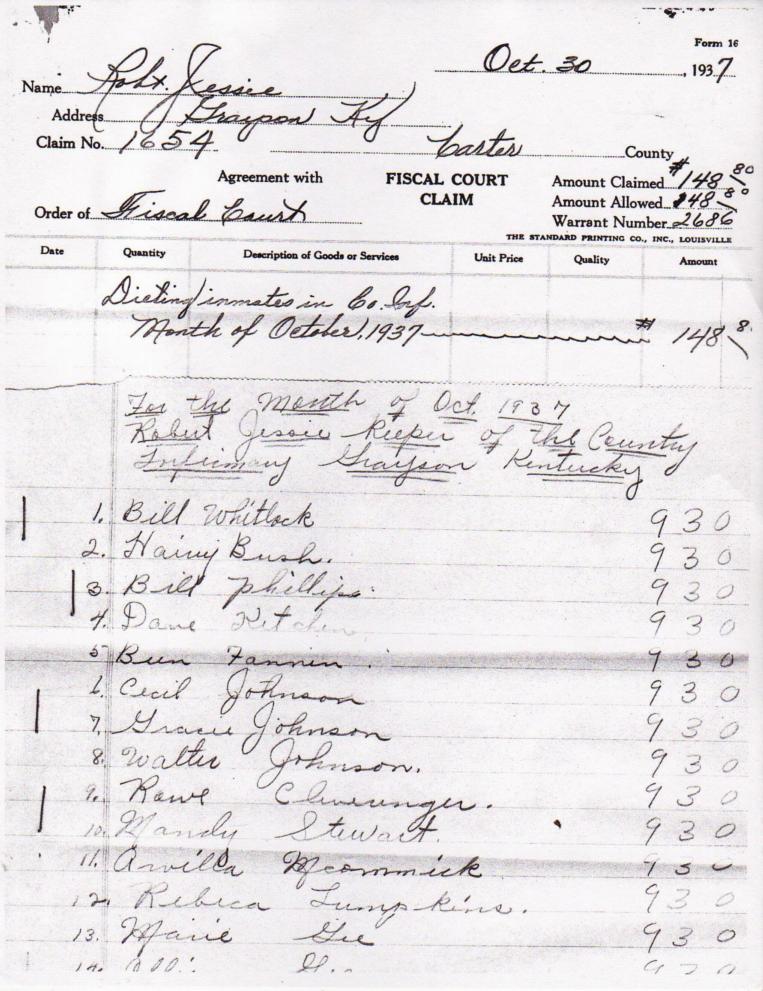 Form 16
Oct. 30, 1937
Name Robt. Jessie
Address Grayson Ky
Claim No. 1654
Carter County
Agreement with
FISCAL COURT
CLAIM
Amount Claimed # 148 80
Amount Allowed 148 80
Order of Fiscal Court
Warrant Number 2686
THE STANDARD PRINTING CO., INC., LOUISVILLE
Date Quantity Description of Goods or Services Unit Price Quality Amount
Dieting inmates in Co. Inf.
Month of October, 1937 # 148 8
For the Month of Oct. 1937
Robert Jessie Keeper of the County
Infirmary Grayson Kentucky
1. Bill Whitlock 9 3 0
2. Bush. 9 3 0
3. Bill Phillips 9 3 0
4. Dave Kitchen 9 3 0
5 Bun Fannin 9 3 0
6. Cecil Johnson 9 3 0
7. Gracie Johnson 9 3 0
8. Walter Johnson. 9 3 0
9. Rowe Clevenger. 9 3 0
10. Mandy Stewart. 9 3 0
11. Arvilla Mcommick 9 3 0
12. Rebeca Lumpkins. 9 3 0
13. Marie Gee 9 3 0
14.